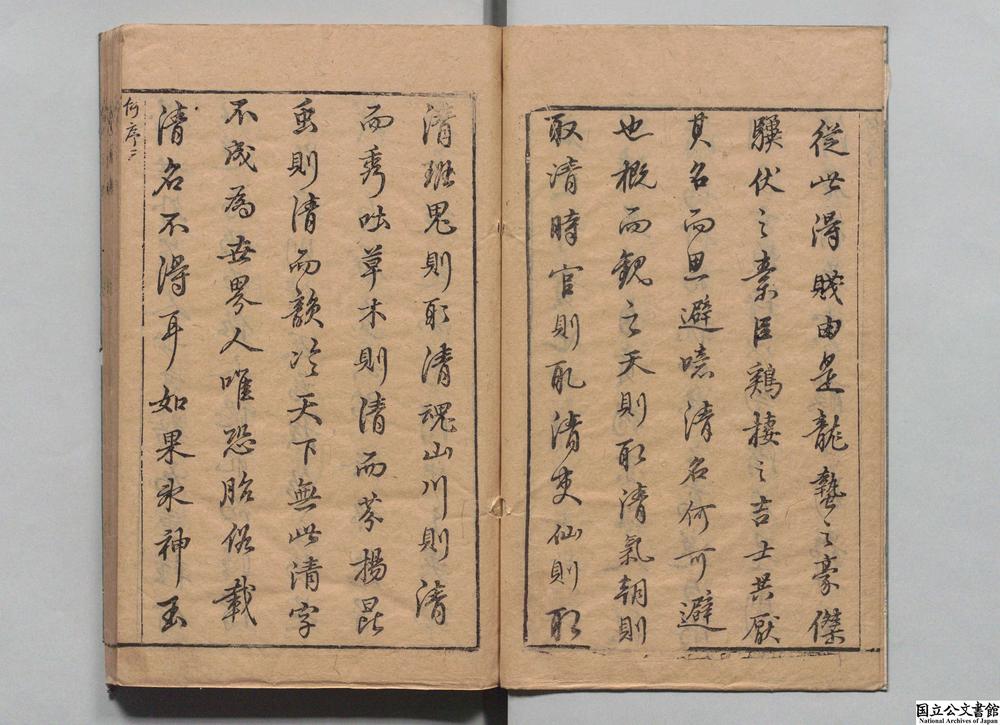 從此得賤由是龍蟄之豪傑
驥伏之素臣鷄棲之吉士共厭
其名而思避噫清名何可避
也概而觀之天則取清氣朝則
取清時官則取清吏仙則取
清班鬼則取清魂山川則清
而秀咄草木則清而芬揚昆
虫則清而韻冷天下無此清字
不成為世界人唯恐胎俗載
清名不得耳如果氷神玉
何序三
国立公文書館
National Archives of Japan